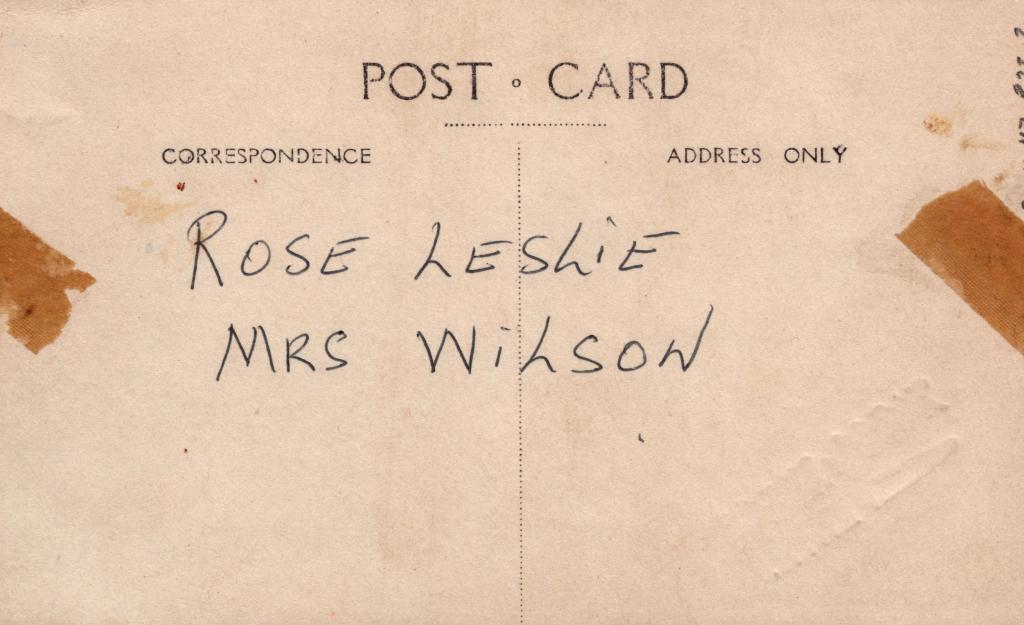 POST · CARD
CORRESPONDENCE
ADDRESS ONLY
ROSE LESLiE
MRS WiLSON